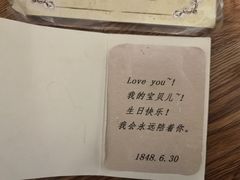 Love you~!
我的宝贝儿~!
生日快乐!
我会永远陪着你。
1848.6.30